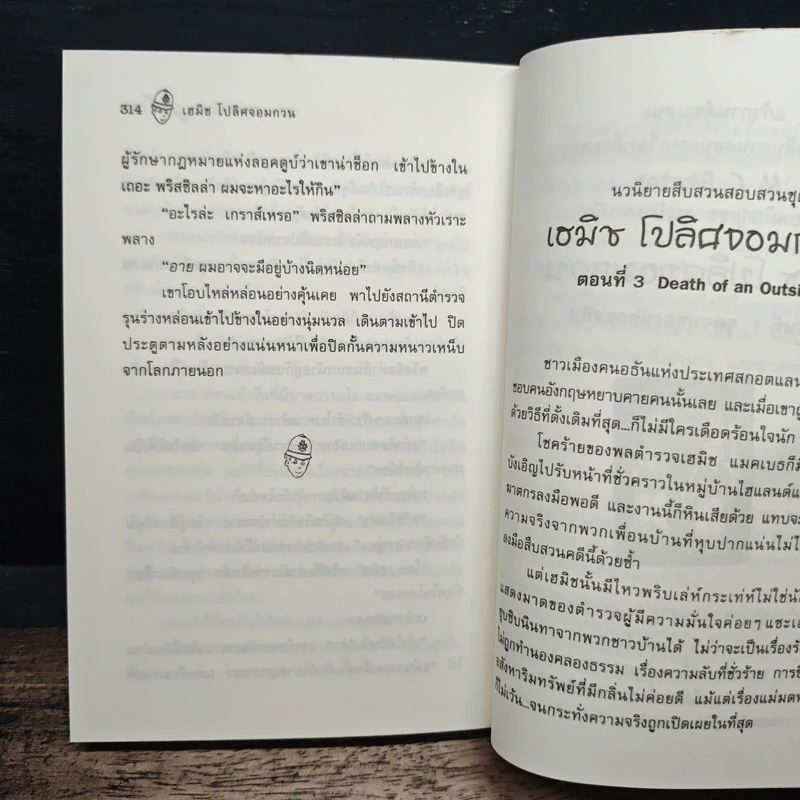 314 เฮมิช โปลิศจอมกวน
ผู้รักษากฎหมายแห่งลอคดูบ์ว่าเขาน่าช็อก เข้าไปข้างใน
เถอะ พริสซิลล่า ผมจะหาอะไรให้กิน”
“อะไรล่ะ เกราส์เหรอ” พริสซิลล่าถามพลางหัวเราะ
พลาง
“อาย ผมอาจจะมีอยู่บ้างนิดหน่อย”
เขาโอบไหล่หล่อนอย่างคุ้นเคย พาไปยังสถานีตำรวจ
รุนร่างหล่อนเข้าไปข้างในอย่างนุ่มนวล เดินตามเข้าไป ปิด
ประตูตามหลังอย่างแน่นหนาเพื่อปิดกั้นความหนาวเหน็บ
จากโลกภายนอก
นวนิยายสืบสวนสอบสวนชุด
เฮมิช โปลิศจอมก
ตอนที่ 3 Death of an Outsi
ชาวเมืองคนอธันแห่งประเทศสกอตแลน
ชอบคนอังกฤษหยาบคายคนนั้นเลย และเมื่อเขาถู
ด้วยวิธีที่ดั้งเดิมที่สุด...ก็ไม่มีใครเดือดร้อนใจนัก
โชคร้ายของพลตำรวจเฮมิช แมคเบธก็มี
บังเอิญไปรับหน้าที่ชั่วคราวในหมู่บ้านไฮแลนด์แ
มาตกรลงมือพอดี และงานนี้ก็หินเสียด้วย แทบจะ
ความจริงจากพวกเพื่อนบ้านที่หุบปากแน่นไม่ไ
ลงมือสืบสวนคดีนี้ด้วยซ้ำ
แต่เฮมิชนั้นมีไหวพริบเล่ห์กระเท่ห์ไม่ใช่น้
แสดงมาดของตำรวจผู้มีความมั่นใจค่อยๆ แซะเอ
ซุบซิบนินทาจากพวกชาวบ้านได้ ไม่ว่าจะเป็นเรื่องรั
ไม่ถูกทำนองคลองธรรม เรื่องความลับที่ชั่วร้าย การซื
อสังหาริมทรัพย์ที่มีกลิ่นไม่ค่อยดี แม้แต่เรื่องแม่มดห
ก็ไม่เว้น...จนกระทั่งความจริงถูกเปิดเผยในที่สุด